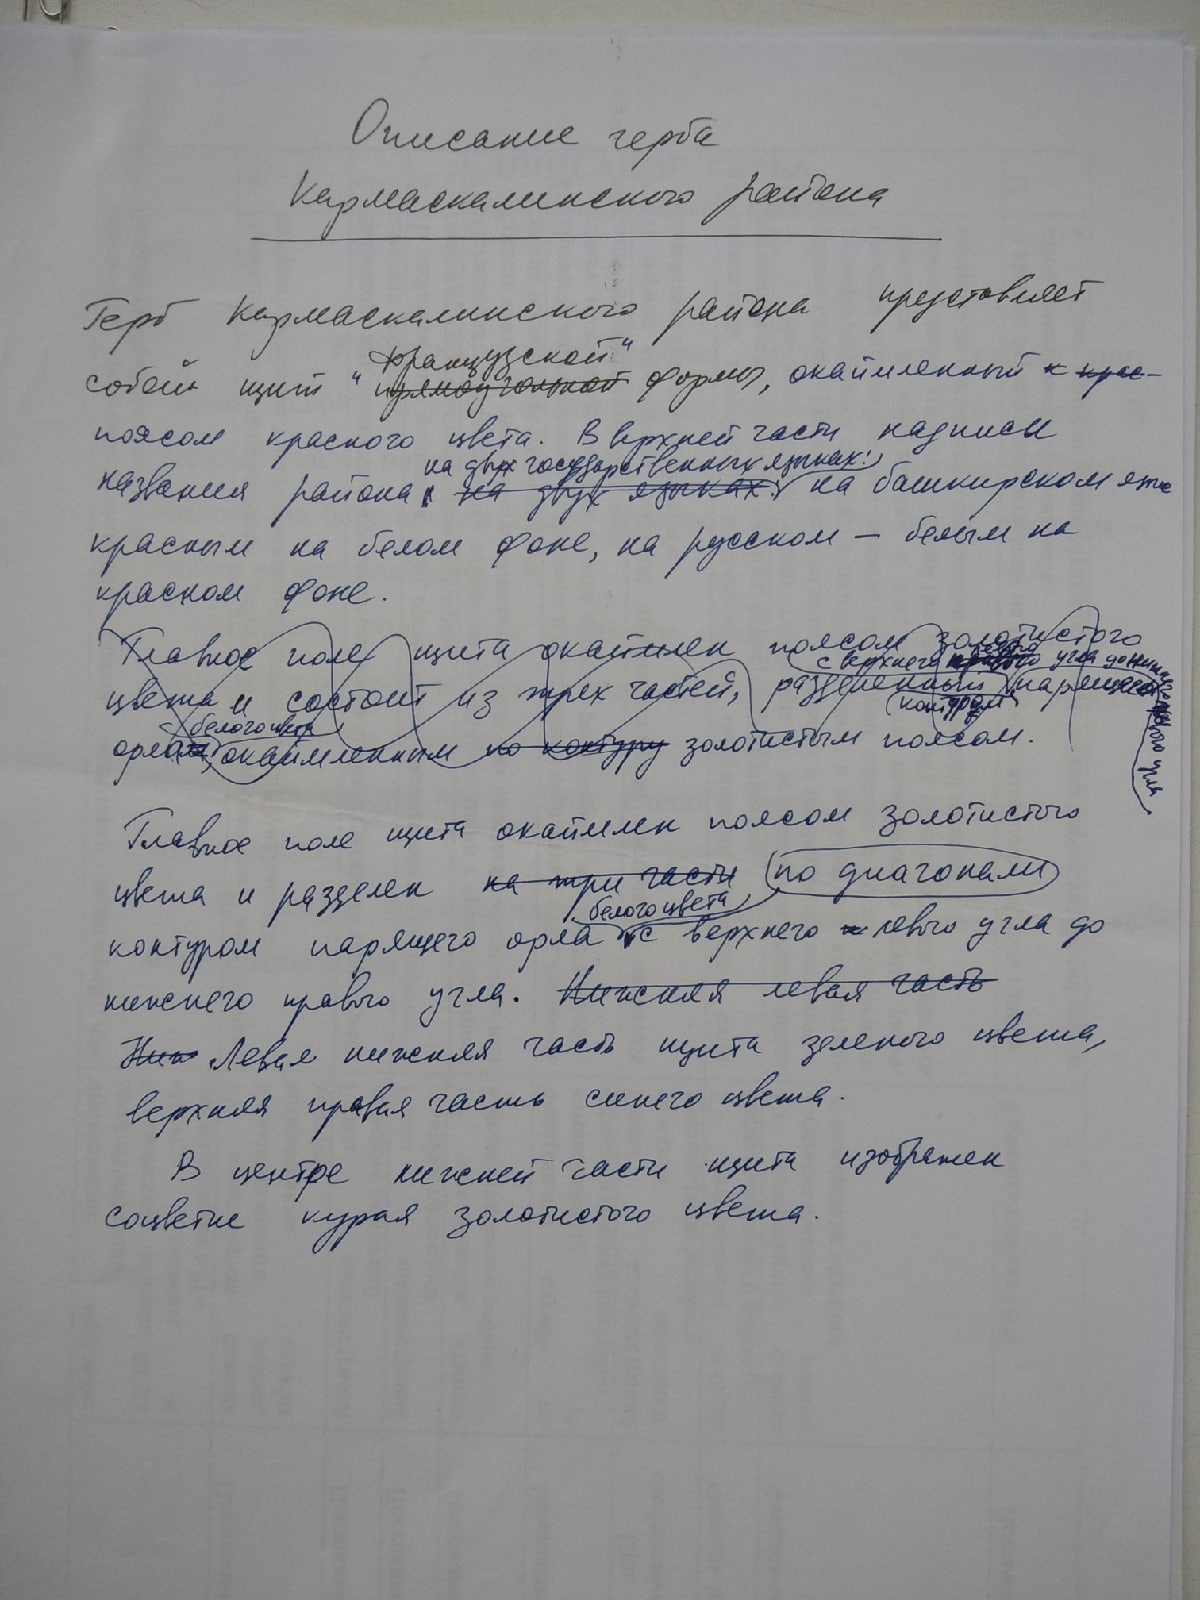 Описание герба
Кармаскалинского района
Герб Кармаскалинского района представляет
французской"
собой щит " прямоугольной формы, окаймленный к крас-
поясом красного цвета. В верхней части надписи
на двух государственных языках:
названия района на двух языках: на башкирском языке
красным на белом фоне, на русском — белым на
красном фоне.
Главное поле щита окаймлен поясом золотистого
с верхнего правого угла до нижнего
цвета и состоит из трех частей, разделенный парящего
белого цвета контуром
орла, окаймленным по контуру золотистым поясом.
угла
Главное поле щита окаймлен поясом золотистого
цвета и разделен на три части по диагонали
белого цвета
контуром парящего орла с верхнего левого угла до
нижнего правого угла. Нижняя левая часть
Ниж Левая нижняя часть щита зеленого цвета,
верхняя правая часть синего цвета.
В центре нижней части щита изображен
соцветие курая золотистого цвета.